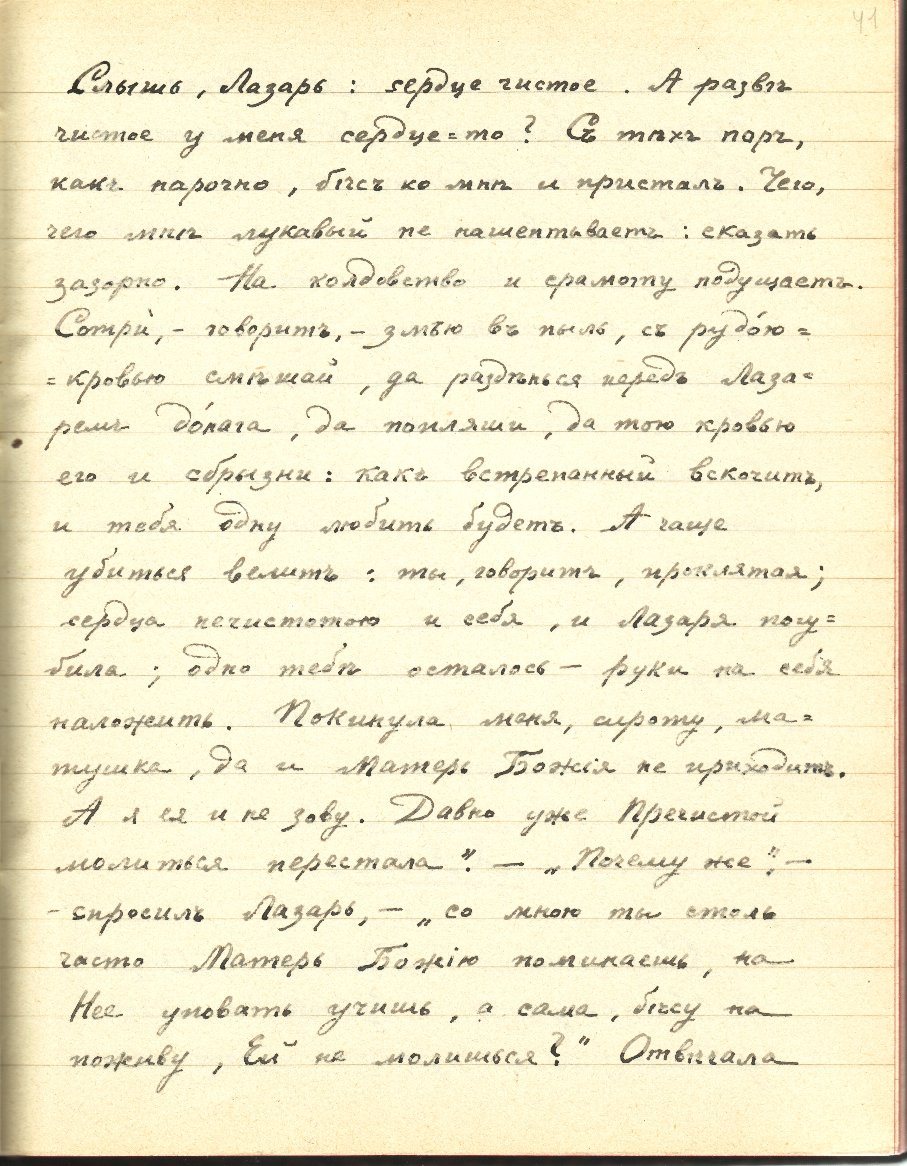 41
Слышь, Лазарь: сердце чистое. А развѣ
чистое у меня сердце=то? Съ тѣхъ поръ,
какъ нарочно, бѣсъ ко мнѣ и присталъ. Чего,
чего мнѣ лукавый не нашептываетъ: сказать
зазорно. На колдовство и срамоту подущаетъ.
Сотри,- говоритъ,- змѣю въ пыль, съ рудо́ю=
=кровью смѣшай, да раздѣнься передъ Лаза=
ремъ до́нага, да попляши, да тою кровью
его и сбрызни: какъ встрепанный вскочитъ,
и тебя одну любить будетъ. А чаще
убиться велитъ: ты, говоритъ, проклятая;
сердца нечистотою и себя, и Лазаря погу=
била; одно тебѣ осталось – руки на себя
наложить. Покинула меня, сироту, ма=
тушка, да и Матерь Божія не приходитъ.
А я ея и не зову. Давно уже Пречистой
молиться перестала". – „Почему же", –
- спросилъ Лазарь, – „со мною ты столь
часто Матерь Божію поминаешь, на
Нее уповать учишь, а сама, бѣсу на
поживу, Ей не молишься?" Отвѣчала